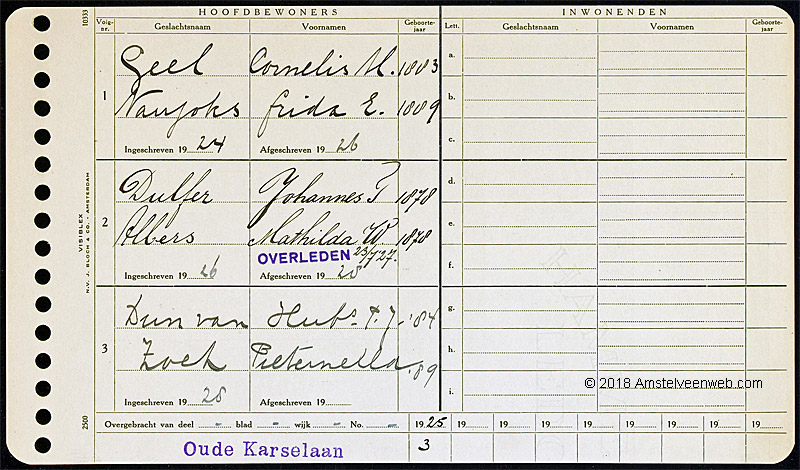 HOOFDBEWONERS INWONENDEN
Volg-nr. Geslachtsnaam Voornamen Geboorte-jaar Lett. Geslachtsnaam Voornamen Geboorte-jaar
1
Geel Cornelis M. 1883
Naujoks Frida E. 1889
Ingeschreven 1924 Afgeschreven 1926
2
Dulfer Johannes P 1878
Albers Mathilda W. 1878
OVERLEDEN 23/7 27.
Ingeschreven 1926 Afgeschreven 1928
3
Dun van Hub. '84
Zoek Pieternella '89
Ingeschreven 1928 Afgeschreven 19
a.
b.
c.
d.
e.
f.
g.
h.
i.
Overgebracht van deel - blad - wijk - No. - 1925 19 19 19 19 19 19 19 19
Oude Karselaan 3
10333
VISIBLEX
N.V. J. BLOCH & CO. - AMSTERDAM
2500
© 2018 Amstelveenweb.com